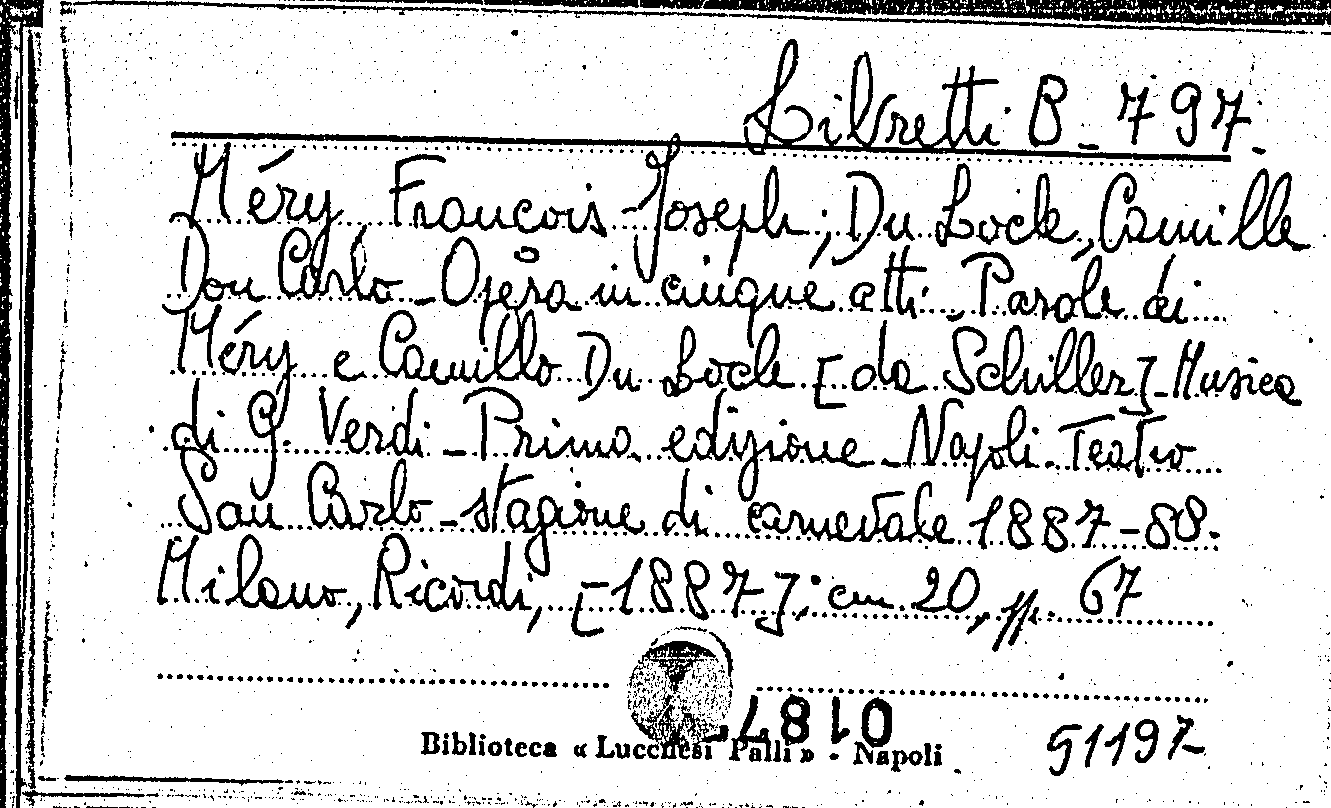 Libretti B - 797.
Méry, François-Joseph; Du Locle, Camille
Don Carlo - Opera in cinque atti - Parole di
Méry e Camillo Du Locle [da Schiller] - Musica
di G. Verdi - Prima edizione - Napoli - Teatro
San Carlo - stagione di carnevale 1887-88.
Milano, Ricordi, [1887]; cm. 20, pp. 67
0187
Biblioteca « Lucchesi Palli » - Napoli
51197